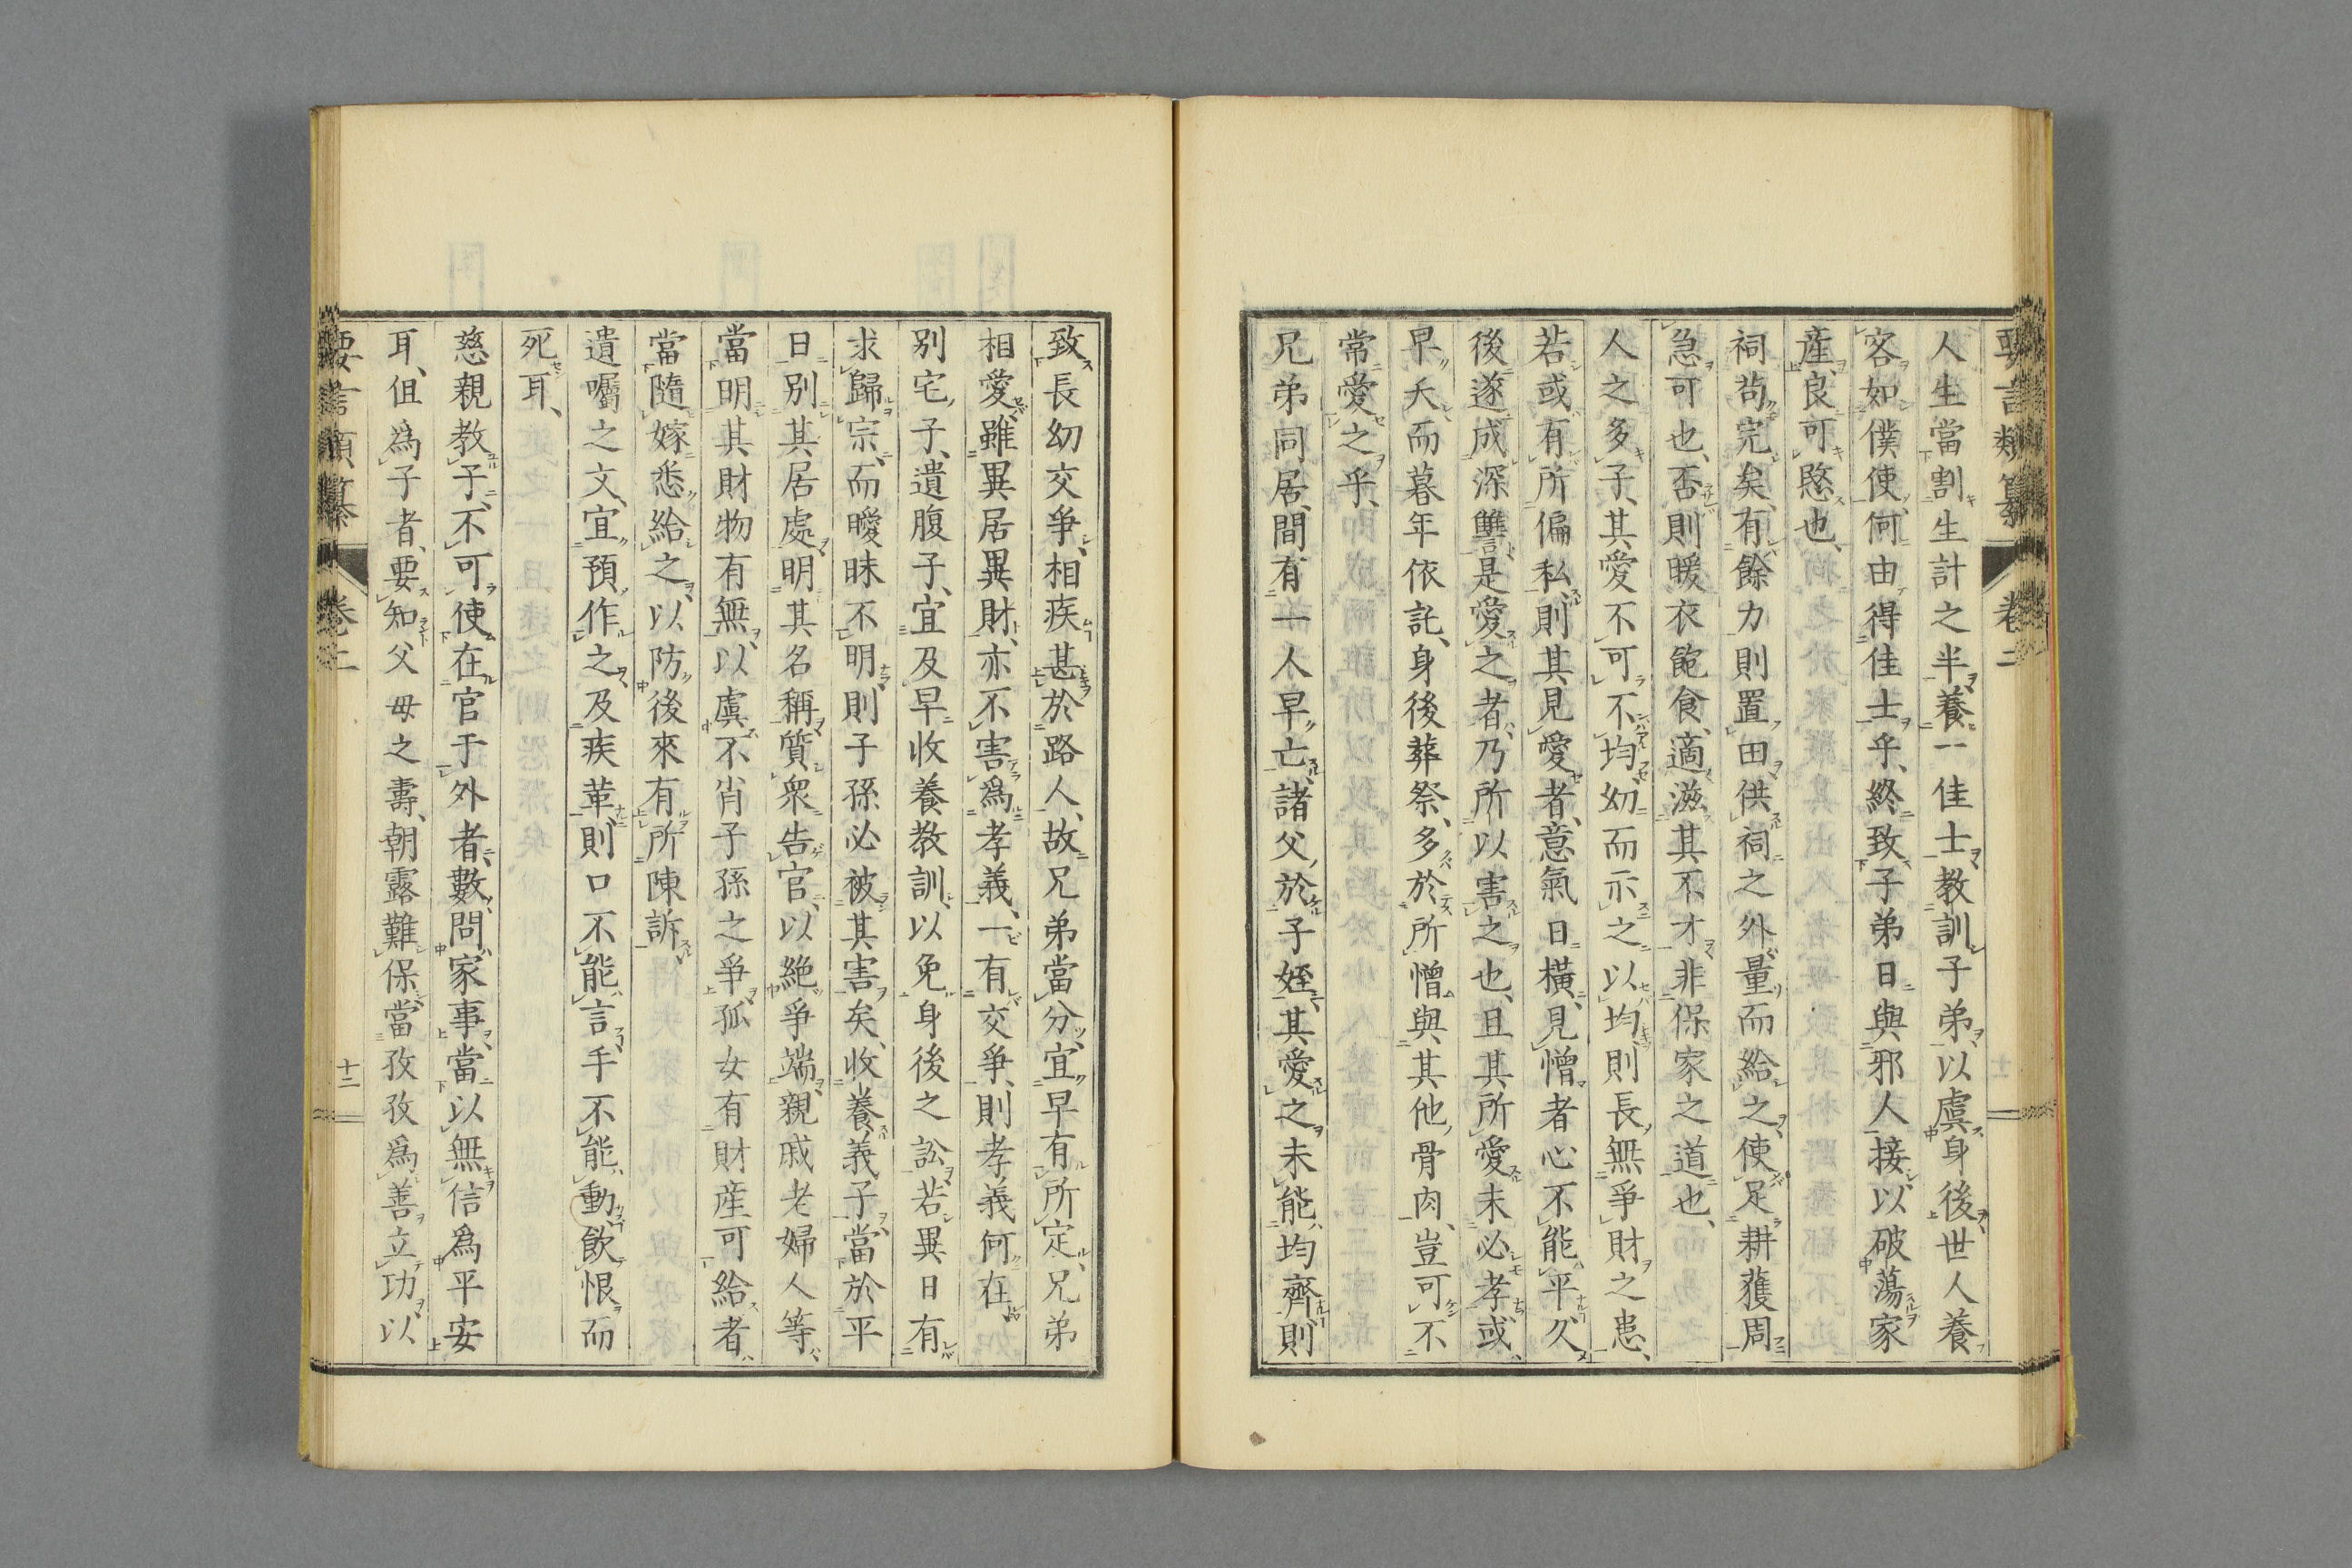 要言類纂 卷二
人生當割生計之半養一佳士教訓子弟以虞身後世人養
客如僕使何由得佳士乎終致子弟日與邪人接以破蕩家
產良可愍也
祠苟完矣有餘力則置田供祠之外量而給之使足耕穫周
急可也否則暖衣飽食適滋其不才非保家之道也
人之多子其愛不可不均幼而示之以均則長無爭財之患
若或有所偏私則其見愛者意氣日橫見憎者心不能平久
後遂成深讐是愛之者乃所以害之也且其所愛未必孝或
早夭而暮年依託身後葬祭多於所憎與其他骨肉豈可不
常愛之乎
兄弟同居間有一人早亡諸父於子姪其愛之未能均齊則
致長幼交爭相疾甚於路人故兄弟當分宜早有所定兄弟
相愛雖異居異財亦不害為孝義一有交爭則孝義何在
別宅子遺腹子宜及早收養教訓以免身後之訟若異日有
求歸宗而曖昧不明則子孫必被其害矣收養義子當於平
日別其居處明其名稱質衆告官以絕爭端親戚老婦人等
當明其財物有無以虞不肖子孫之爭孤女有財產可給者
當隨嫁悉給之以防後來有所陳訴
遺囑之文宜預作之及疾革則口不能言手不能動飲恨而
死耳
慈親教子不可使在官于外者數問家事當以無信為平安
耳但為子者要知父母之壽朝露難保當孜孜為善立功以
要言類纂 卷二 十二